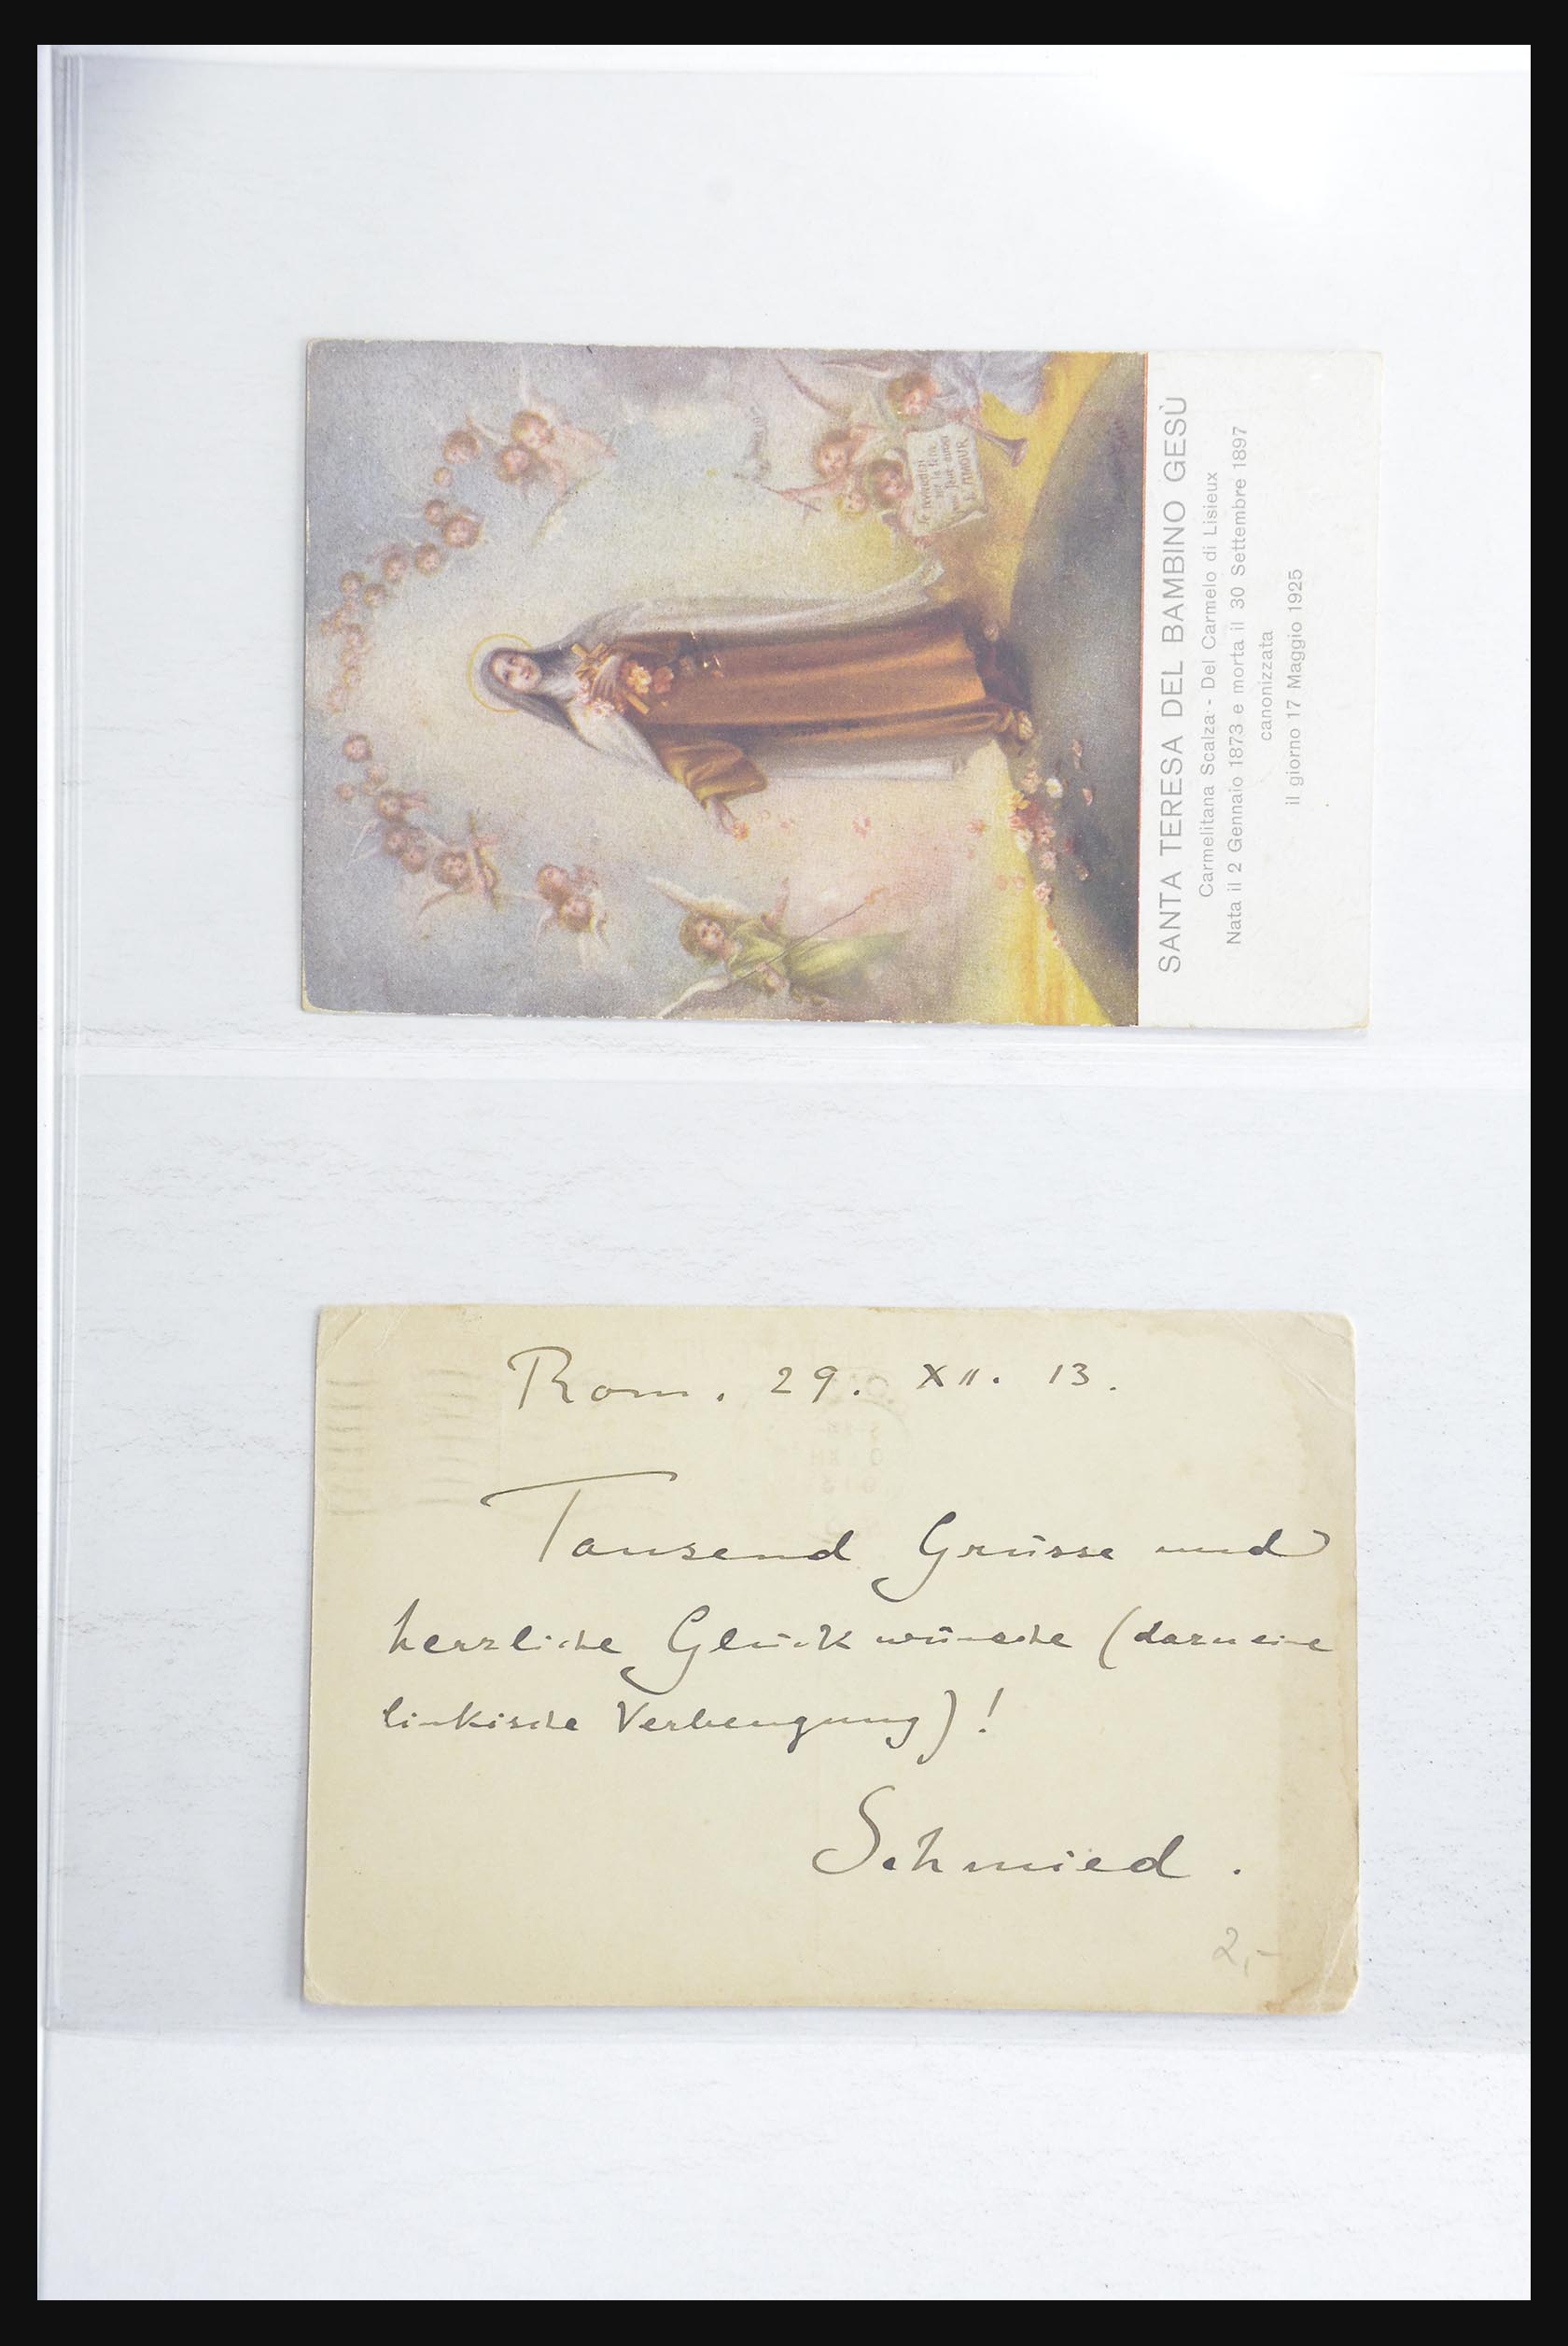 SANTA TERESA DEL BAMBINO GESÙ
Carmelitana Scalza - Del Carmelo di Lisieux
Nata il 2 Gennaio 1873 e morta il 30 Settembre 1897
canonizzata
il giorno 17 Maggio 1925
Je reviendrai
sur la terre
pour faire aimer
L'AMOUR
Rom. 29. XII. 13.
Tausend Grüsse und
herzliche Glückwünsche (dazu eine
linkische Verbeugung)!
Schmied.
2,-